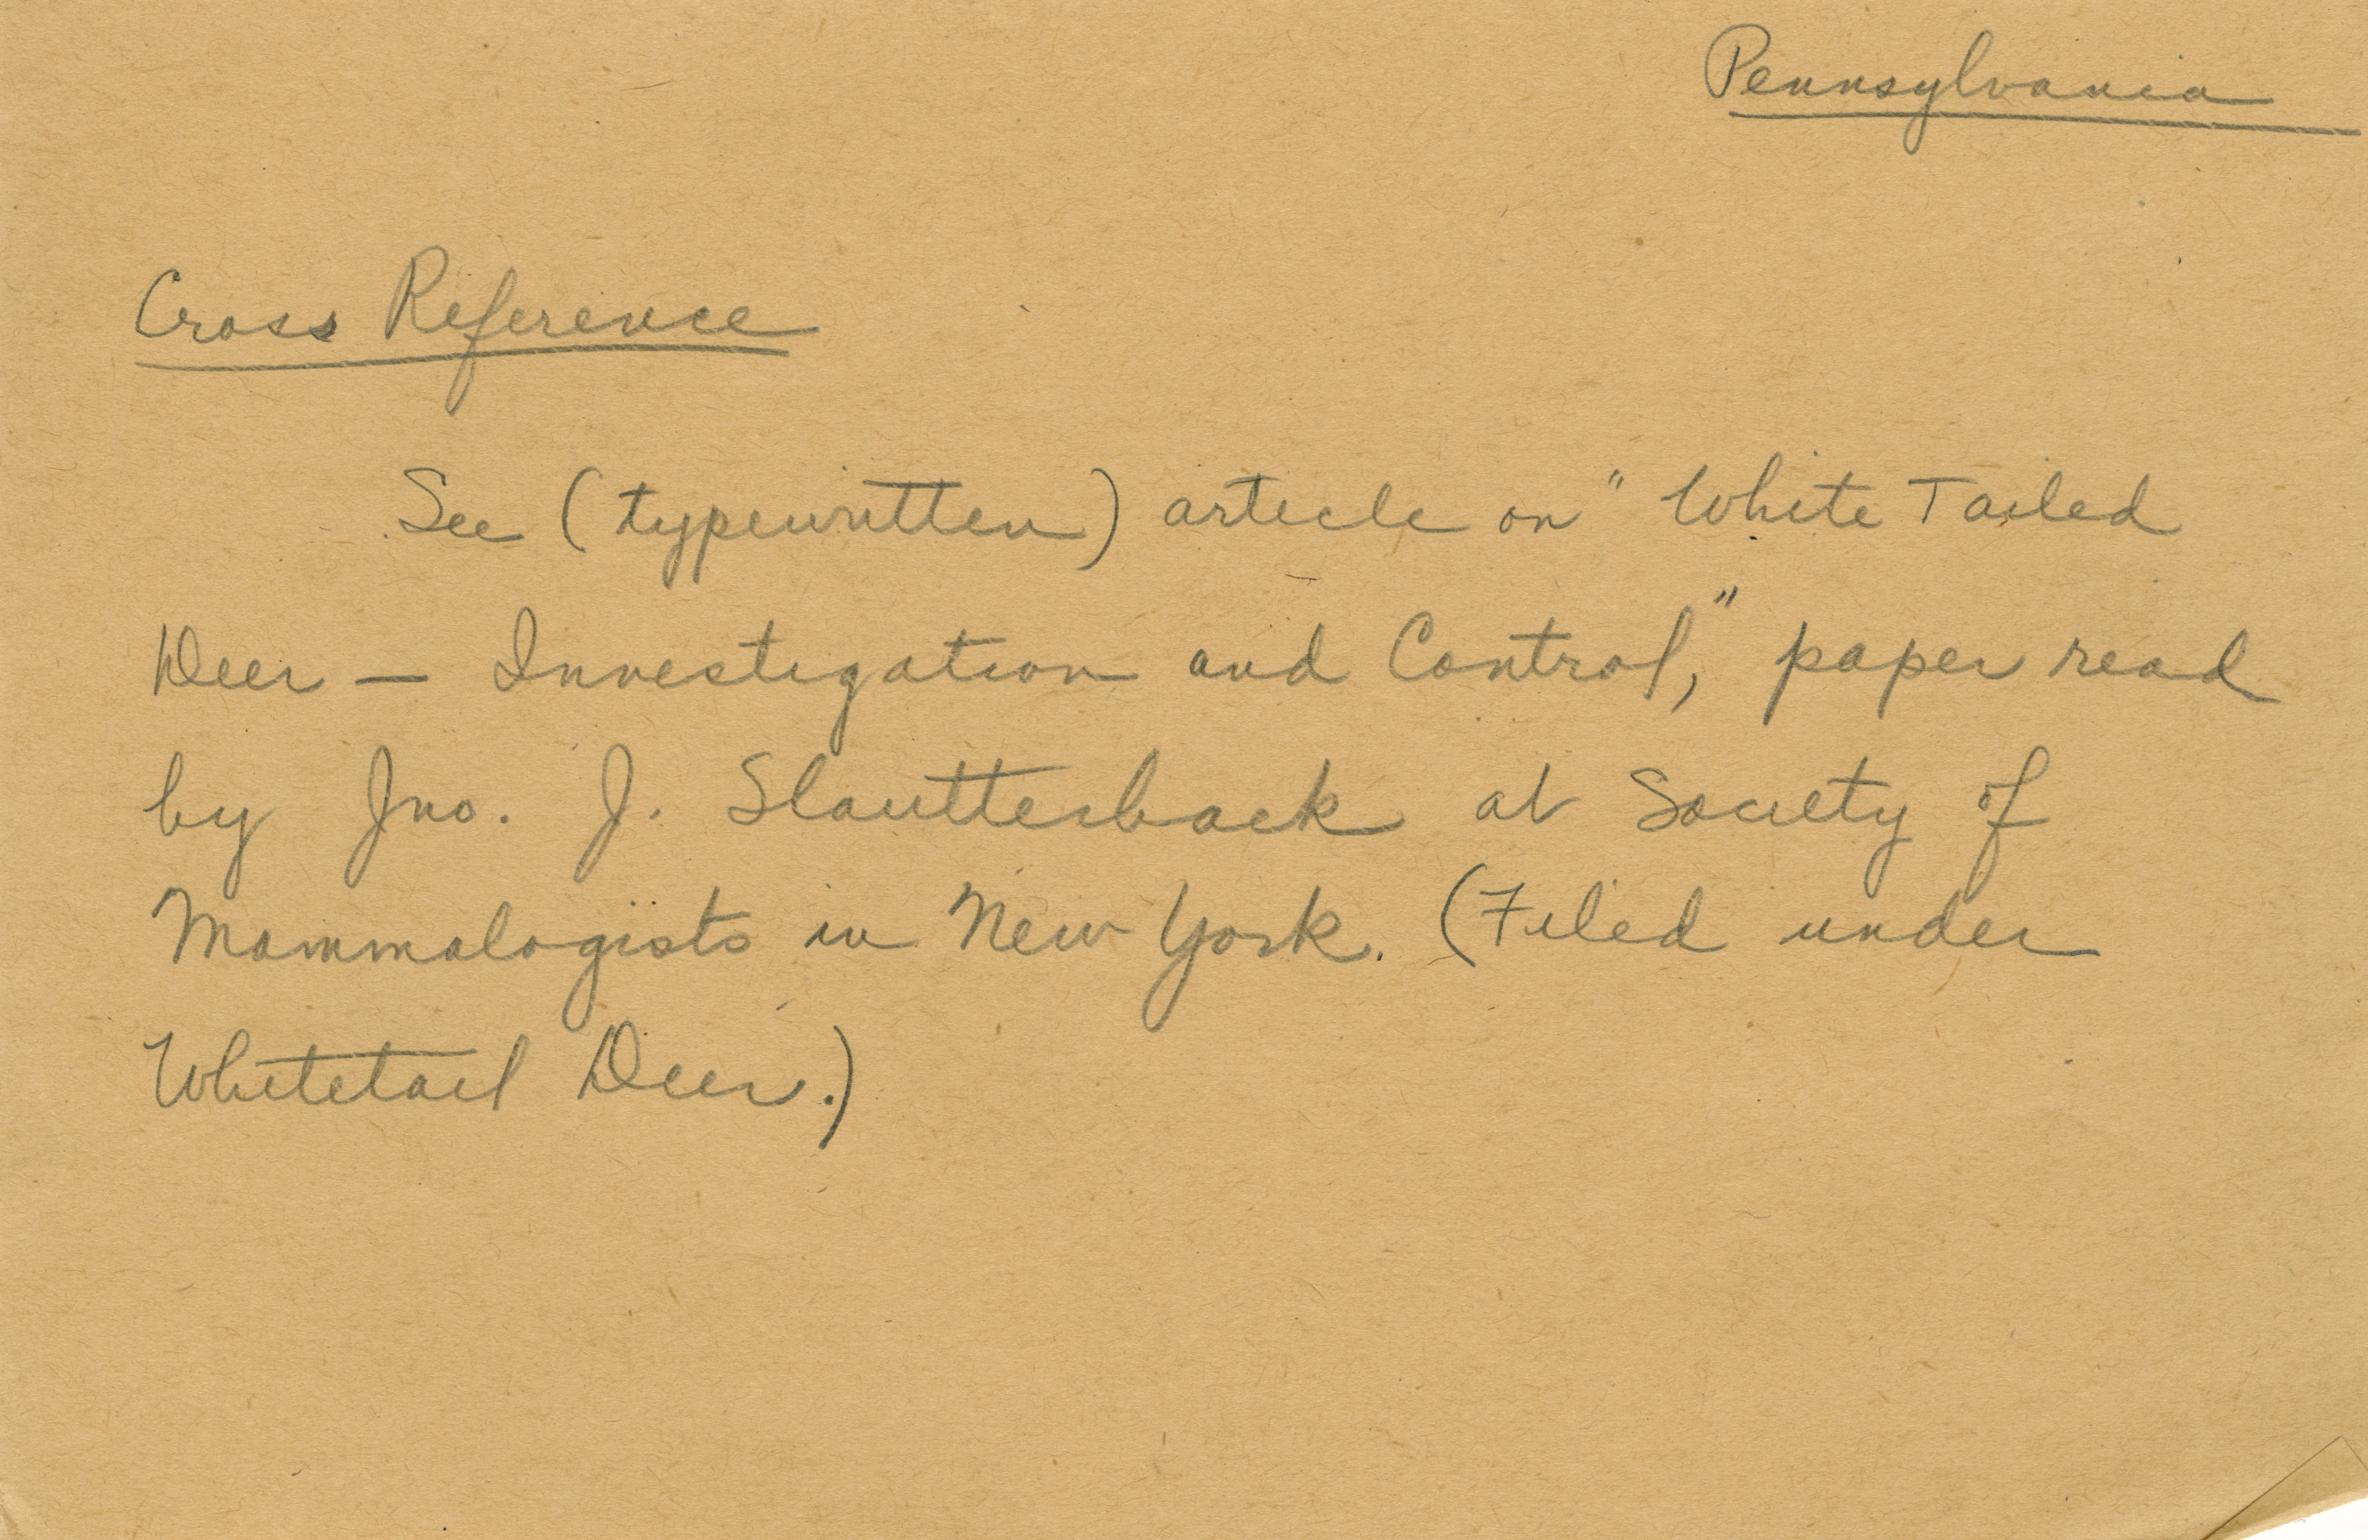 Pennsylvania
Cross Reference
See (typewritten) article on "White Tailed
Deer — Investigation and Control," paper read
by Jno. J. Slautterback at Society of
Mammalogists in New York. (Filed under
Whitetail Deer.)